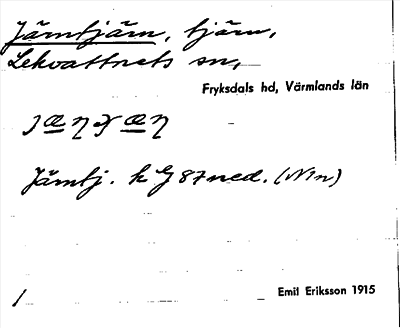 Järntjärn, tjärn,
Lekvattnets sn,
Fryksdals hd, Värmlands län
Järntj. k G 87 ned. (N1n)
Emil Eriksson 1915
1